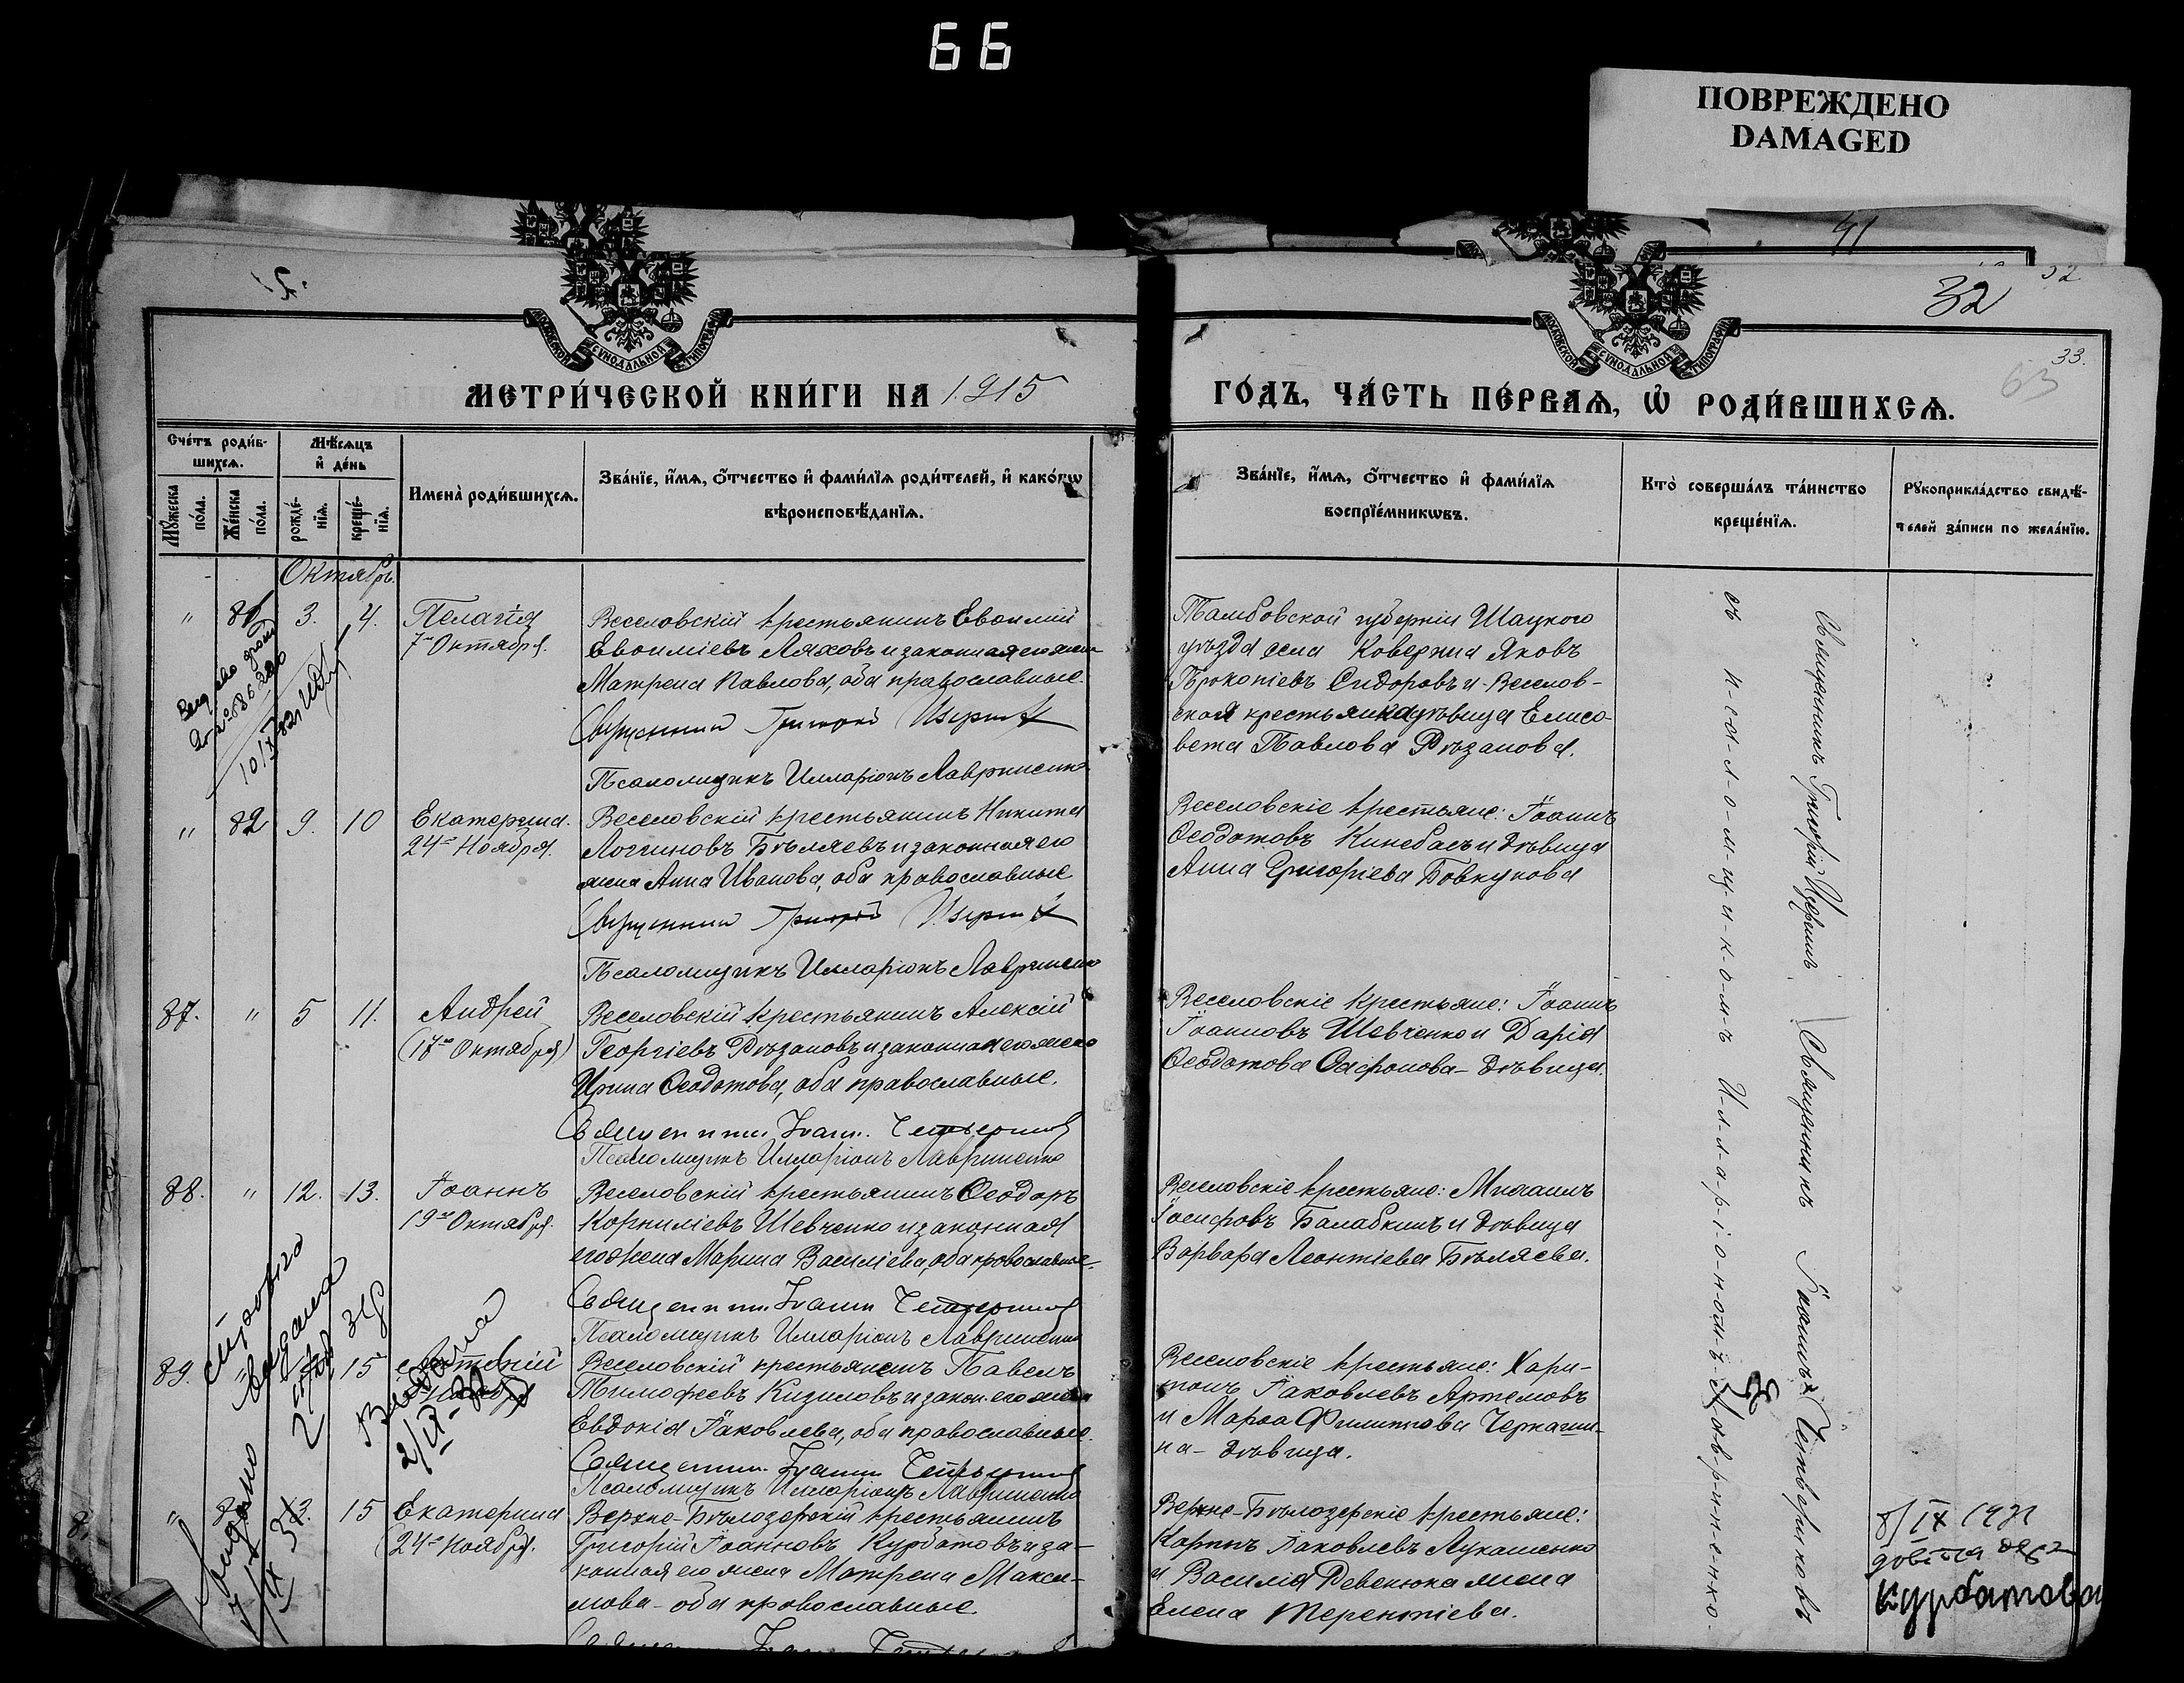 66
ПОВРЕЖДЕНО
DAMAGED
41
32
32
33.
63
МОСКОВСКОЙ СѴНОДАЛЬНОЙ ТИПОГРАФІИ
МОСКОВСКОЙ СѴНОДАЛЬНОЙ ТИПОГРАФІИ
МЕТРИ́ЧЕСКОЙ КНИ́ГИ НА 1915
ГО́ДЪ, ЧА́СТЬ ПЕ́РВАѦ, Ѡ҆ РОДИ́ВШИХСѦ.
Сче́тъ роди́в-
шихсѧ.
Мѣ́сѧцъ
и҆ де́нь
Мꙋ́жеска по́ла.
Же́нска по́ла.
рожде́-
нїѧ.
креще́-
нїѧ.
Имена̀ роди́вшихсѧ.
Зва́нїе, и҆́мѧ, ѻ҆́тчество и҆ фами́лїѧ роди́телей, и҆ како́гѡ
вѣроисповѣ́данїѧ.
Зва́нїе, и҆́мѧ, ѻ҆́тчество и҆ фами́лїѧ
воспрїе́мникѡвъ.
Кто̀ соверша́лъ та́инство
креще́нїѧ.
Рꙋкоприкла́дство свидѣ́-
телей за́писи по жела́нїю.
Октябрь.
" 81 3. 4. Пелагія
7го Октября.
Веселовскій крестьянинъ Евѳимій
Евѳиміевъ Ляховъ и законная его жена
Матрена Павлова, оба православные.
Священникъ Григорій Изерги
Псаломщикъ Илларіонъ Лавриненко
Тамбовской губерніи Шацкого
уѣзда села Ковержа Яковъ
Прокопіевъ Сидоровъ и Веселов-
ская крестьянка дѣвица Елисо-
вета Павлова Рѣзанова.
" 82 9. 10 Екатерина.
24го Ноября.
Веселовскій крестьянинъ Никита
Логгиновъ Бѣляевъ и законная его
жена Анна Иванова, оба православные
Священникъ Григорій
Псаломщикъ Илларіонъ Лавриненко
Веселовскіе крестьяне: Іоаннъ
Ѳеодотовъ Кинебасъ и дѣвица
Анна Григоріева Бовкунова
87. " 5 11. Андрей
(17го Октября)
Веселовскій крестьянинъ Алексій
Георгіевъ Рѣзановъ и законная его жена
Ирина Ѳеодотова, оба православные.
Священникъ Іоаннъ Четвериковъ
Псаломщикъ Илларіонъ Лавриненко
Веселовскіе крестьяне: Іоаннъ
Іоанновъ Шевченко и Дарія
Ѳеодотова Сафонова - дѣвица.
88. " 12. 13. Іоаннъ
19го Октября.
Веселовскій крестьянинъ Ѳеодоръ
Корниліевъ Шевченко и законная
его жена Марина Василіева, оба православные.
Священникъ Іоаннъ Четвериковъ
Псаломщикъ Илларіонъ Лавриненко
Веселовскіе крестьяне: Михаилъ
Іосифовъ Балабкинъ и дѣвица
Варвара Леонтіева Бѣляева.
89. " 15
Веселовскій крестьянинъ Павелъ
Тимофеевъ Кизиловъ и закон. его жена
Евдокія Іаковлева, оба православные.
Священникъ Іоаннъ Четвериковъ
Псаломщикъ Илларіонъ Лавриненко
Веселовскіе крестьяне: Хари-
тонъ Іаковлевъ Артемовъ
и Марѳа Филиппова Черкаши-
на - дѣвица.
" 13. 15 Екатерина
(24го Ноября.
Верхне-Бѣлозерскій крестьянинъ
Григорій Іоанновъ Курбатовъ и за-
конная его жена Матрена Макси-
мова - оба православные.
Верхне-Бѣлозерскіе крестьяне:
Карпъ Іаковлевъ Лукашенко
и Василія Ревенюка жена
Елена Терентіева.
Священникъ Григорій Священникъ Іоаннъ Четвериковъ
съ п-са-л-о-м-щ-и-к-о-м-ъ И-л-л-а-р-і-о-н-о-м-ъ Л-а-в-р-и-н-е-н-к-о.
Курбатова